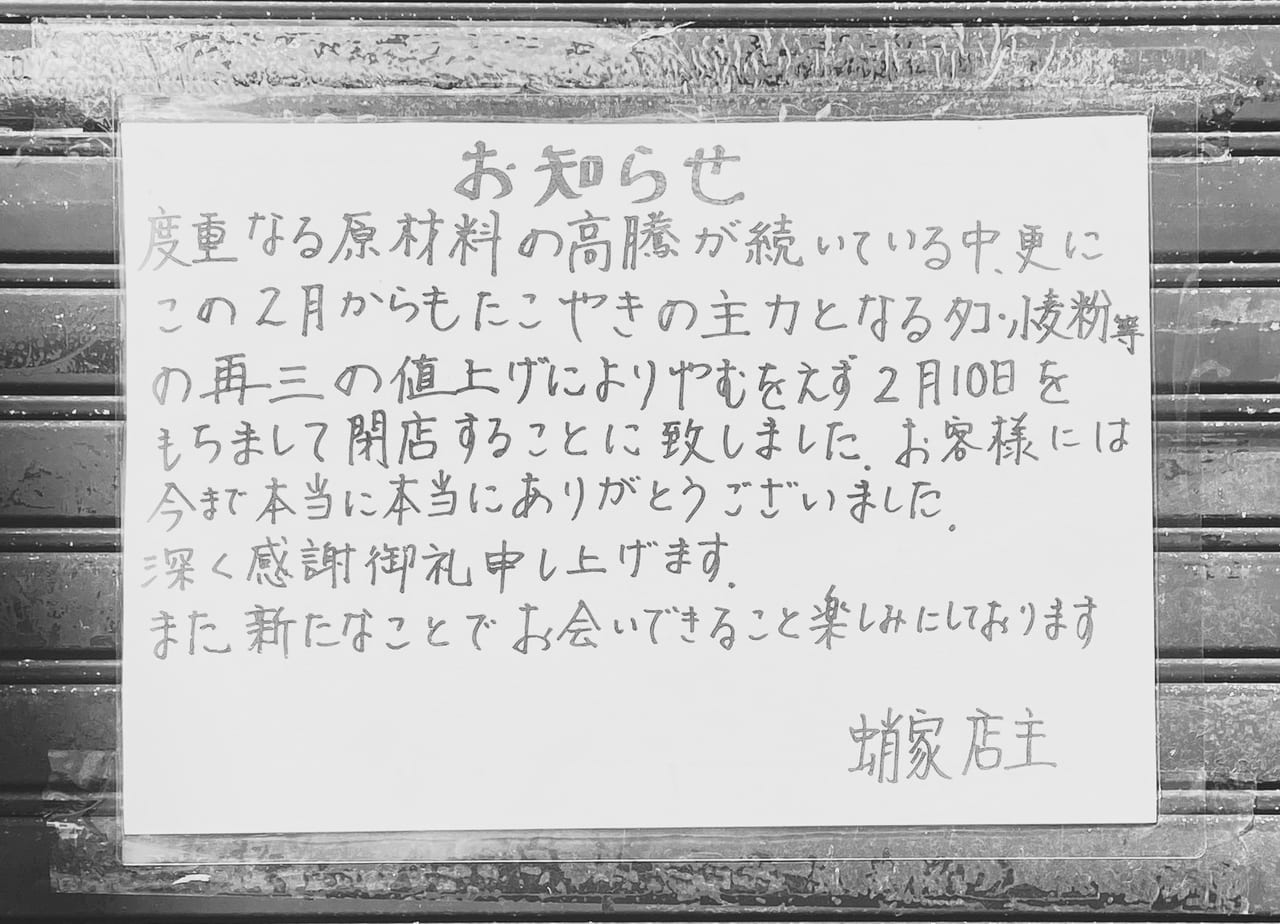 お知らせ
度重なる原材料の高騰が続いている中、更に
この2月からもたこやきの主力となるタコ・小麦粉等
の再三の値上げによりやむをえず2月10日を
もちまして閉店することに致しました。お客様には
今まで本当に本当にありがとうございました。
深く感謝御礼申し上げます。
また、新たなことでお会いできること楽しみにしております
蛸家 店主